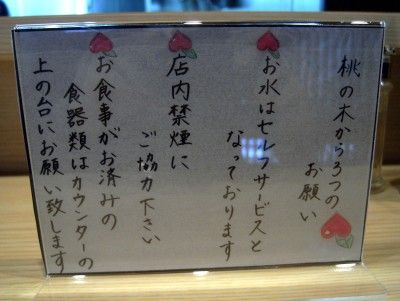 桃の木から3つの
お願い
お水はセルフサービスと
なっております
店内禁煙に
ご協力下さい
お食事がお済みの
食器類はカウンターの
上の台にお願い致します